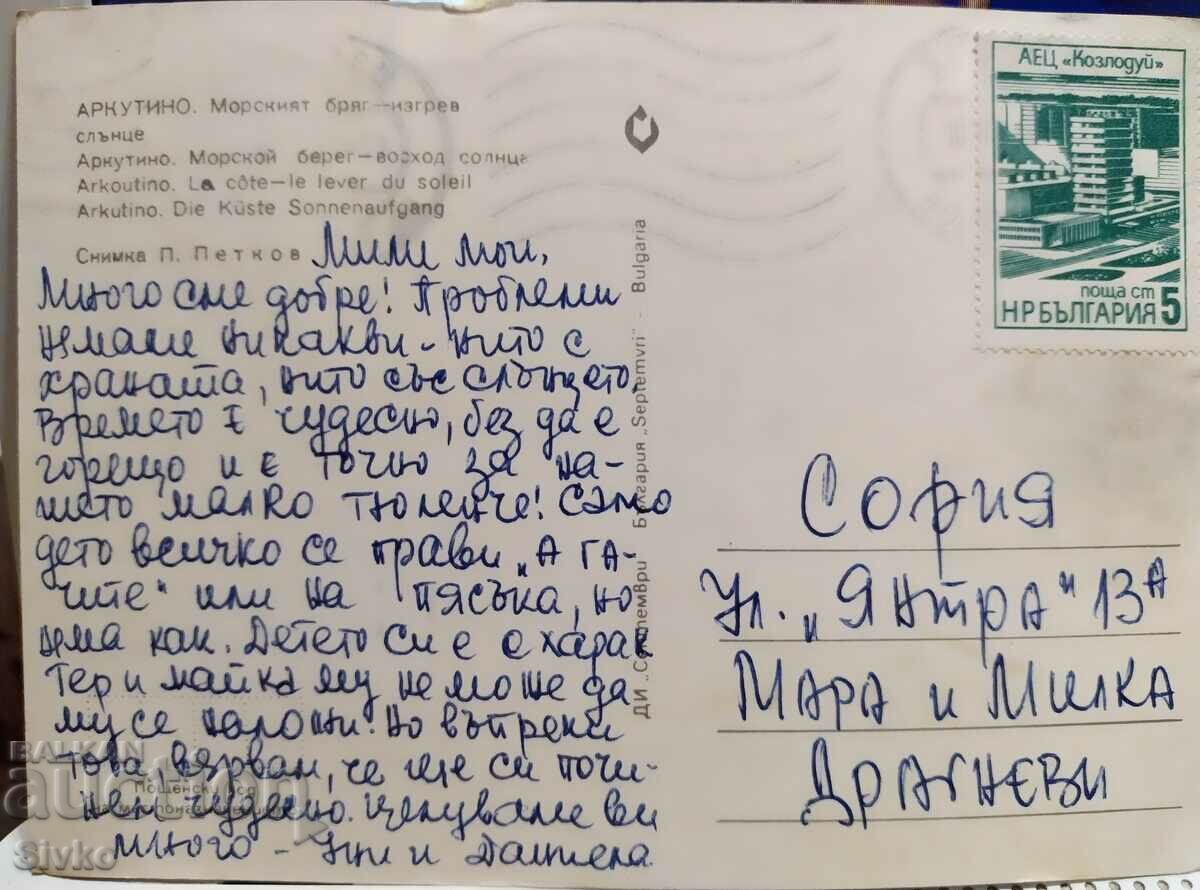 АРКУТИНО. Морският бряг—изгрев
слънце
Аркутино. Морской берег—восход солнца
Arkoutino. La côte—le lever du soleil
Arkutino. Die Küste Sonnenaufgang
Снимка П. Петков
Мили мои,
Много сме добре! Проблеми
нямаме никакви – нито с
храната, нито със слънцето.
Времето е чудесно, без да е
горещо и е точно за на-
шето малко тюленче! Само
дето всичко се прави „в га-
щите" или на пясъка, но
няма как. Детето си е с харак
тер и майка му не може да
му се наложи. Но въпреки
това, вярвам, че ще си почи-
нем чудесно. Целуваме ви
много – и Даниела
ДИ „Септември" България „Septemvri" - Bulgaria
АЕЦ «Козлодуй»
поща ст 5
НР БЪЛГАРИЯ
София
Ул. „Янтра" 13А
Мара и Милка
Драгневи
BALKAN
auction
Sivko